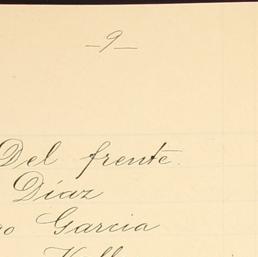 — 9 —
Del frente.
Díaz
Garcia